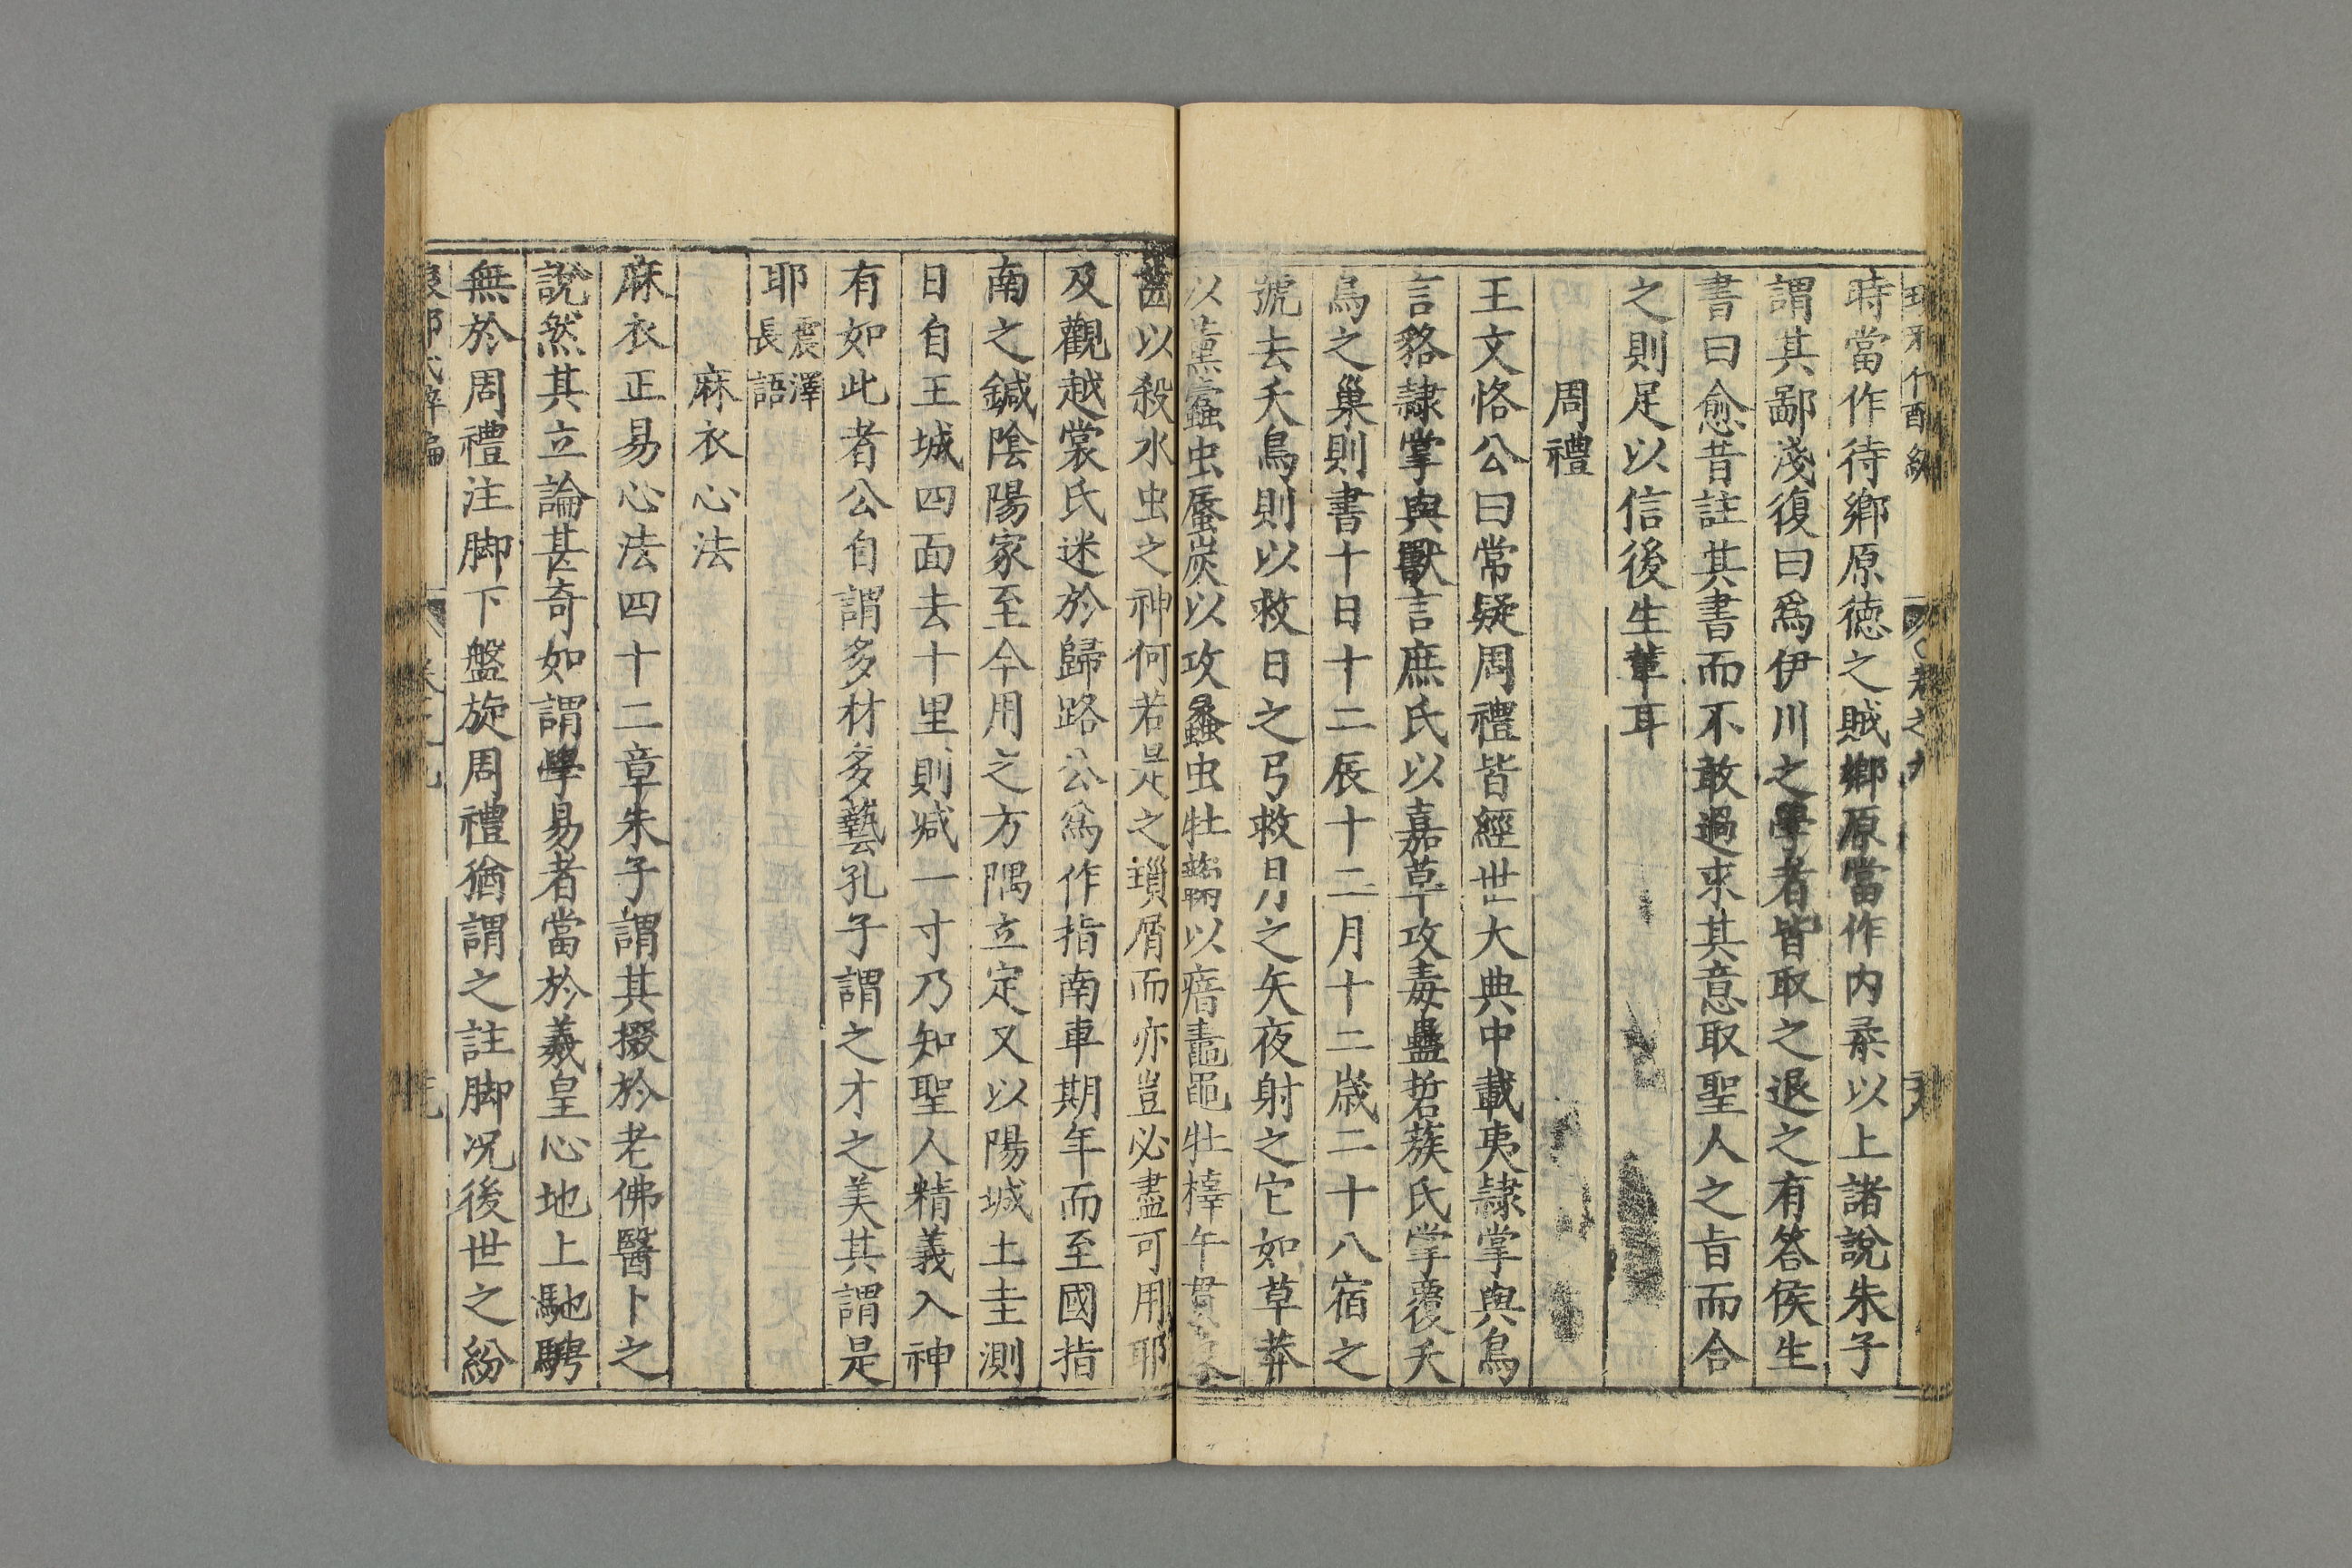 時當作待鄉原德之賊鄉原當作内柔以上諸說朱子
謂其鄙淺復曰爲伊川之學者皆取之退之有答侯生
書曰愈昔註其書而不敢過求其意取聖人之旨而合
之則足以信後生輩耳
周禮
王文恪公曰常疑周禮皆經世大典中載夷隷掌與鳥
言貉隷掌與獸言庶氏以嘉草攻毒蠱硩蔟氏掌覆夭
鳥之巢則書十日十二辰十二月十二歳二十八宿之
號去夭鳥則以救日之弓救月之矢夜射之它如草莽
以薰蠹虫蜃炭以攻蠡虫牡蘜以瘖鼃黽牡橭午貫象
齒以殺水虫之神何若是之瑣屑而亦豈必盡可用耶
及觀越裳氏迷於歸路公爲作指南車期年而至國指
南之鍼陰陽家至今用之方隅立定又以陽城土圭測
日自王城四面去十里則减一寸乃知聖人精義入神
有如此者公自謂多材多藝孔子謂之才之美其謂是
耶震澤長語
麻衣心法
麻衣正易心法四十二章朱子謂其掇於老佛醫卜之
說然其立論甚奇如謂學易者當於羲皇心地上馳騁
無於周禮注脚下盤旋周禮猶謂之註脚况後世之紛